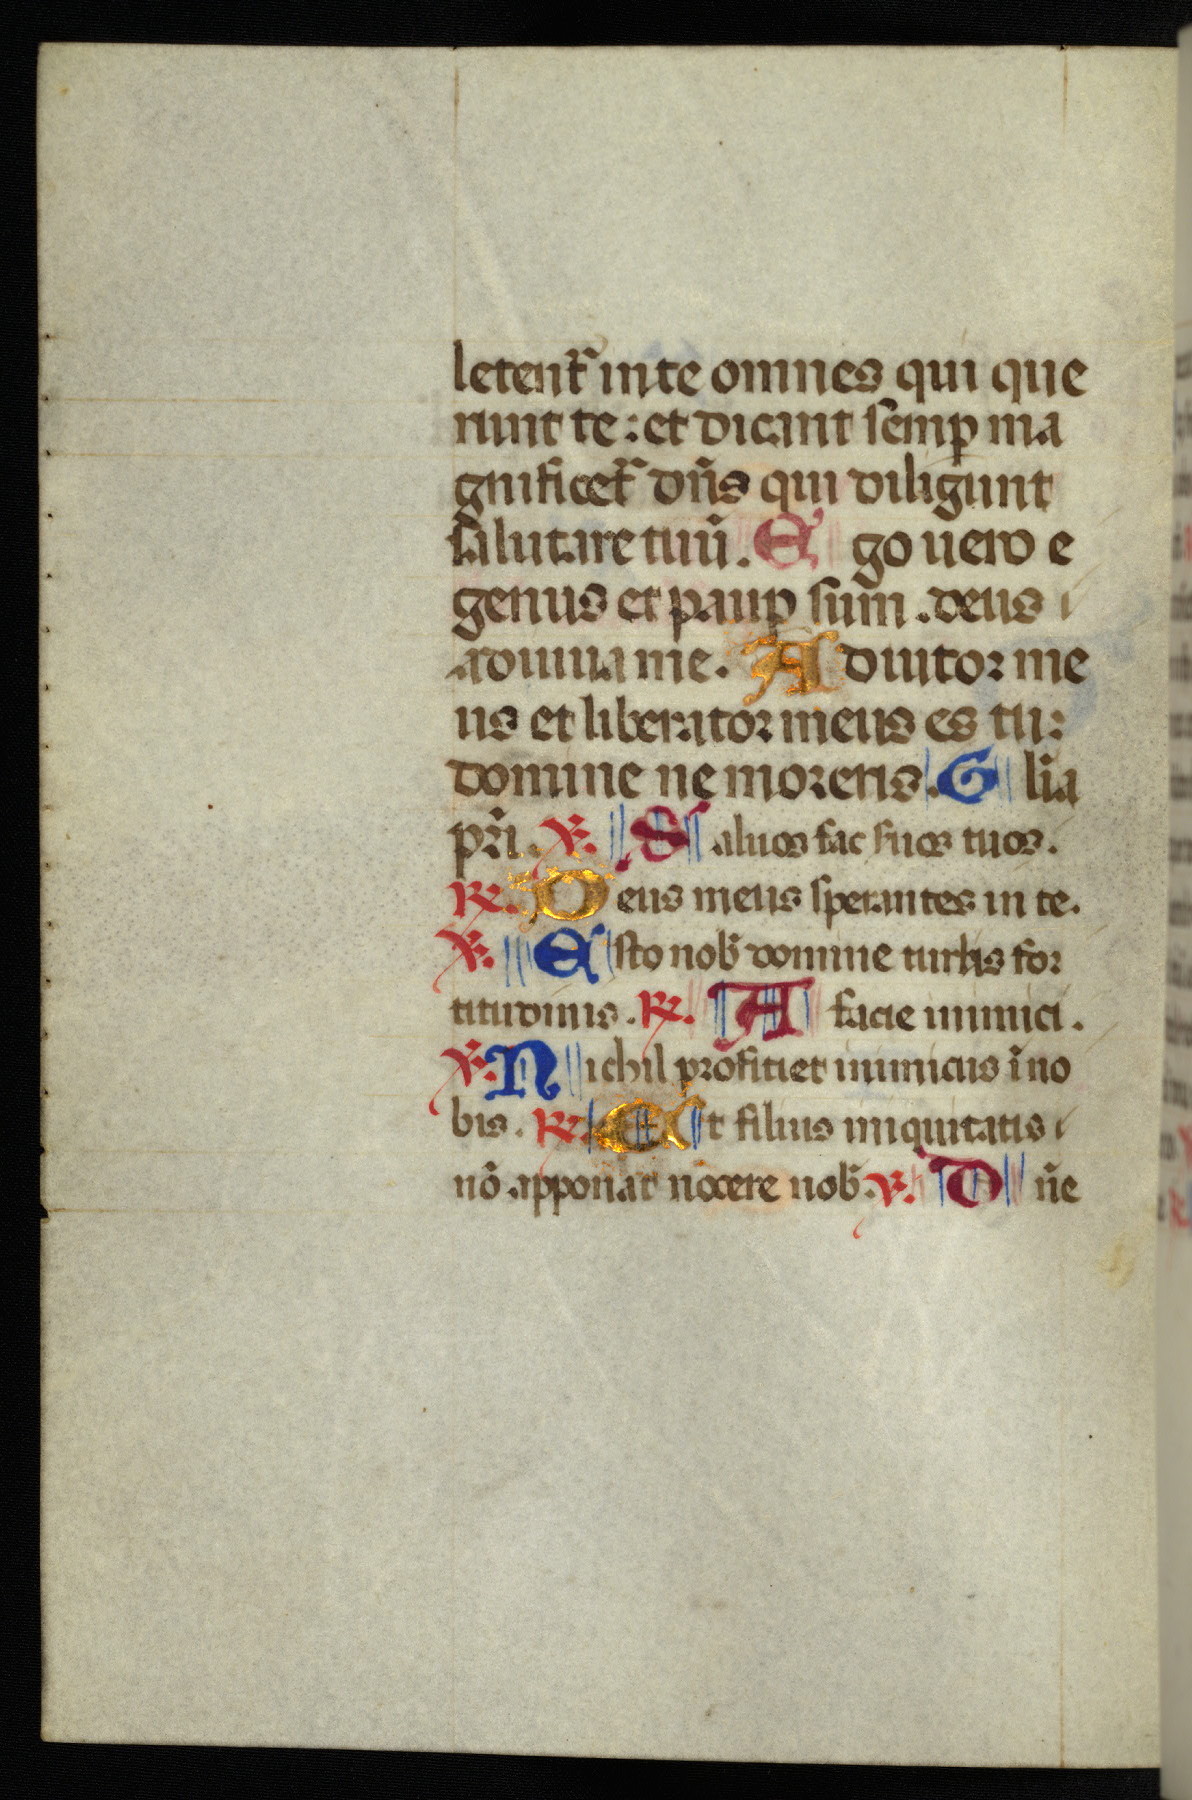 letent᷑ in te omnes qui que
runt te : et dicant semp̲ ma
gnificet᷑ dñs qui diligunt
salutare tuũ . E go uero e
genus et paup̲ sum . deus
adiuua me . A diutor me
us et liberator meus es tu :
domine ne moreris . G lĩa
pr̃i . ℣. S aluos fac suos tuos .
℟. D eus meus sperantes in te .
℣. E sto nob̃ domine turris for
titudinis . ℟. A facie inimici .
℣. N ichil profitiet inimicus ĩ no
bis . ℟. E t filius iniquitatis
nõ apponat nocere nob̃ . ℣. D ñe